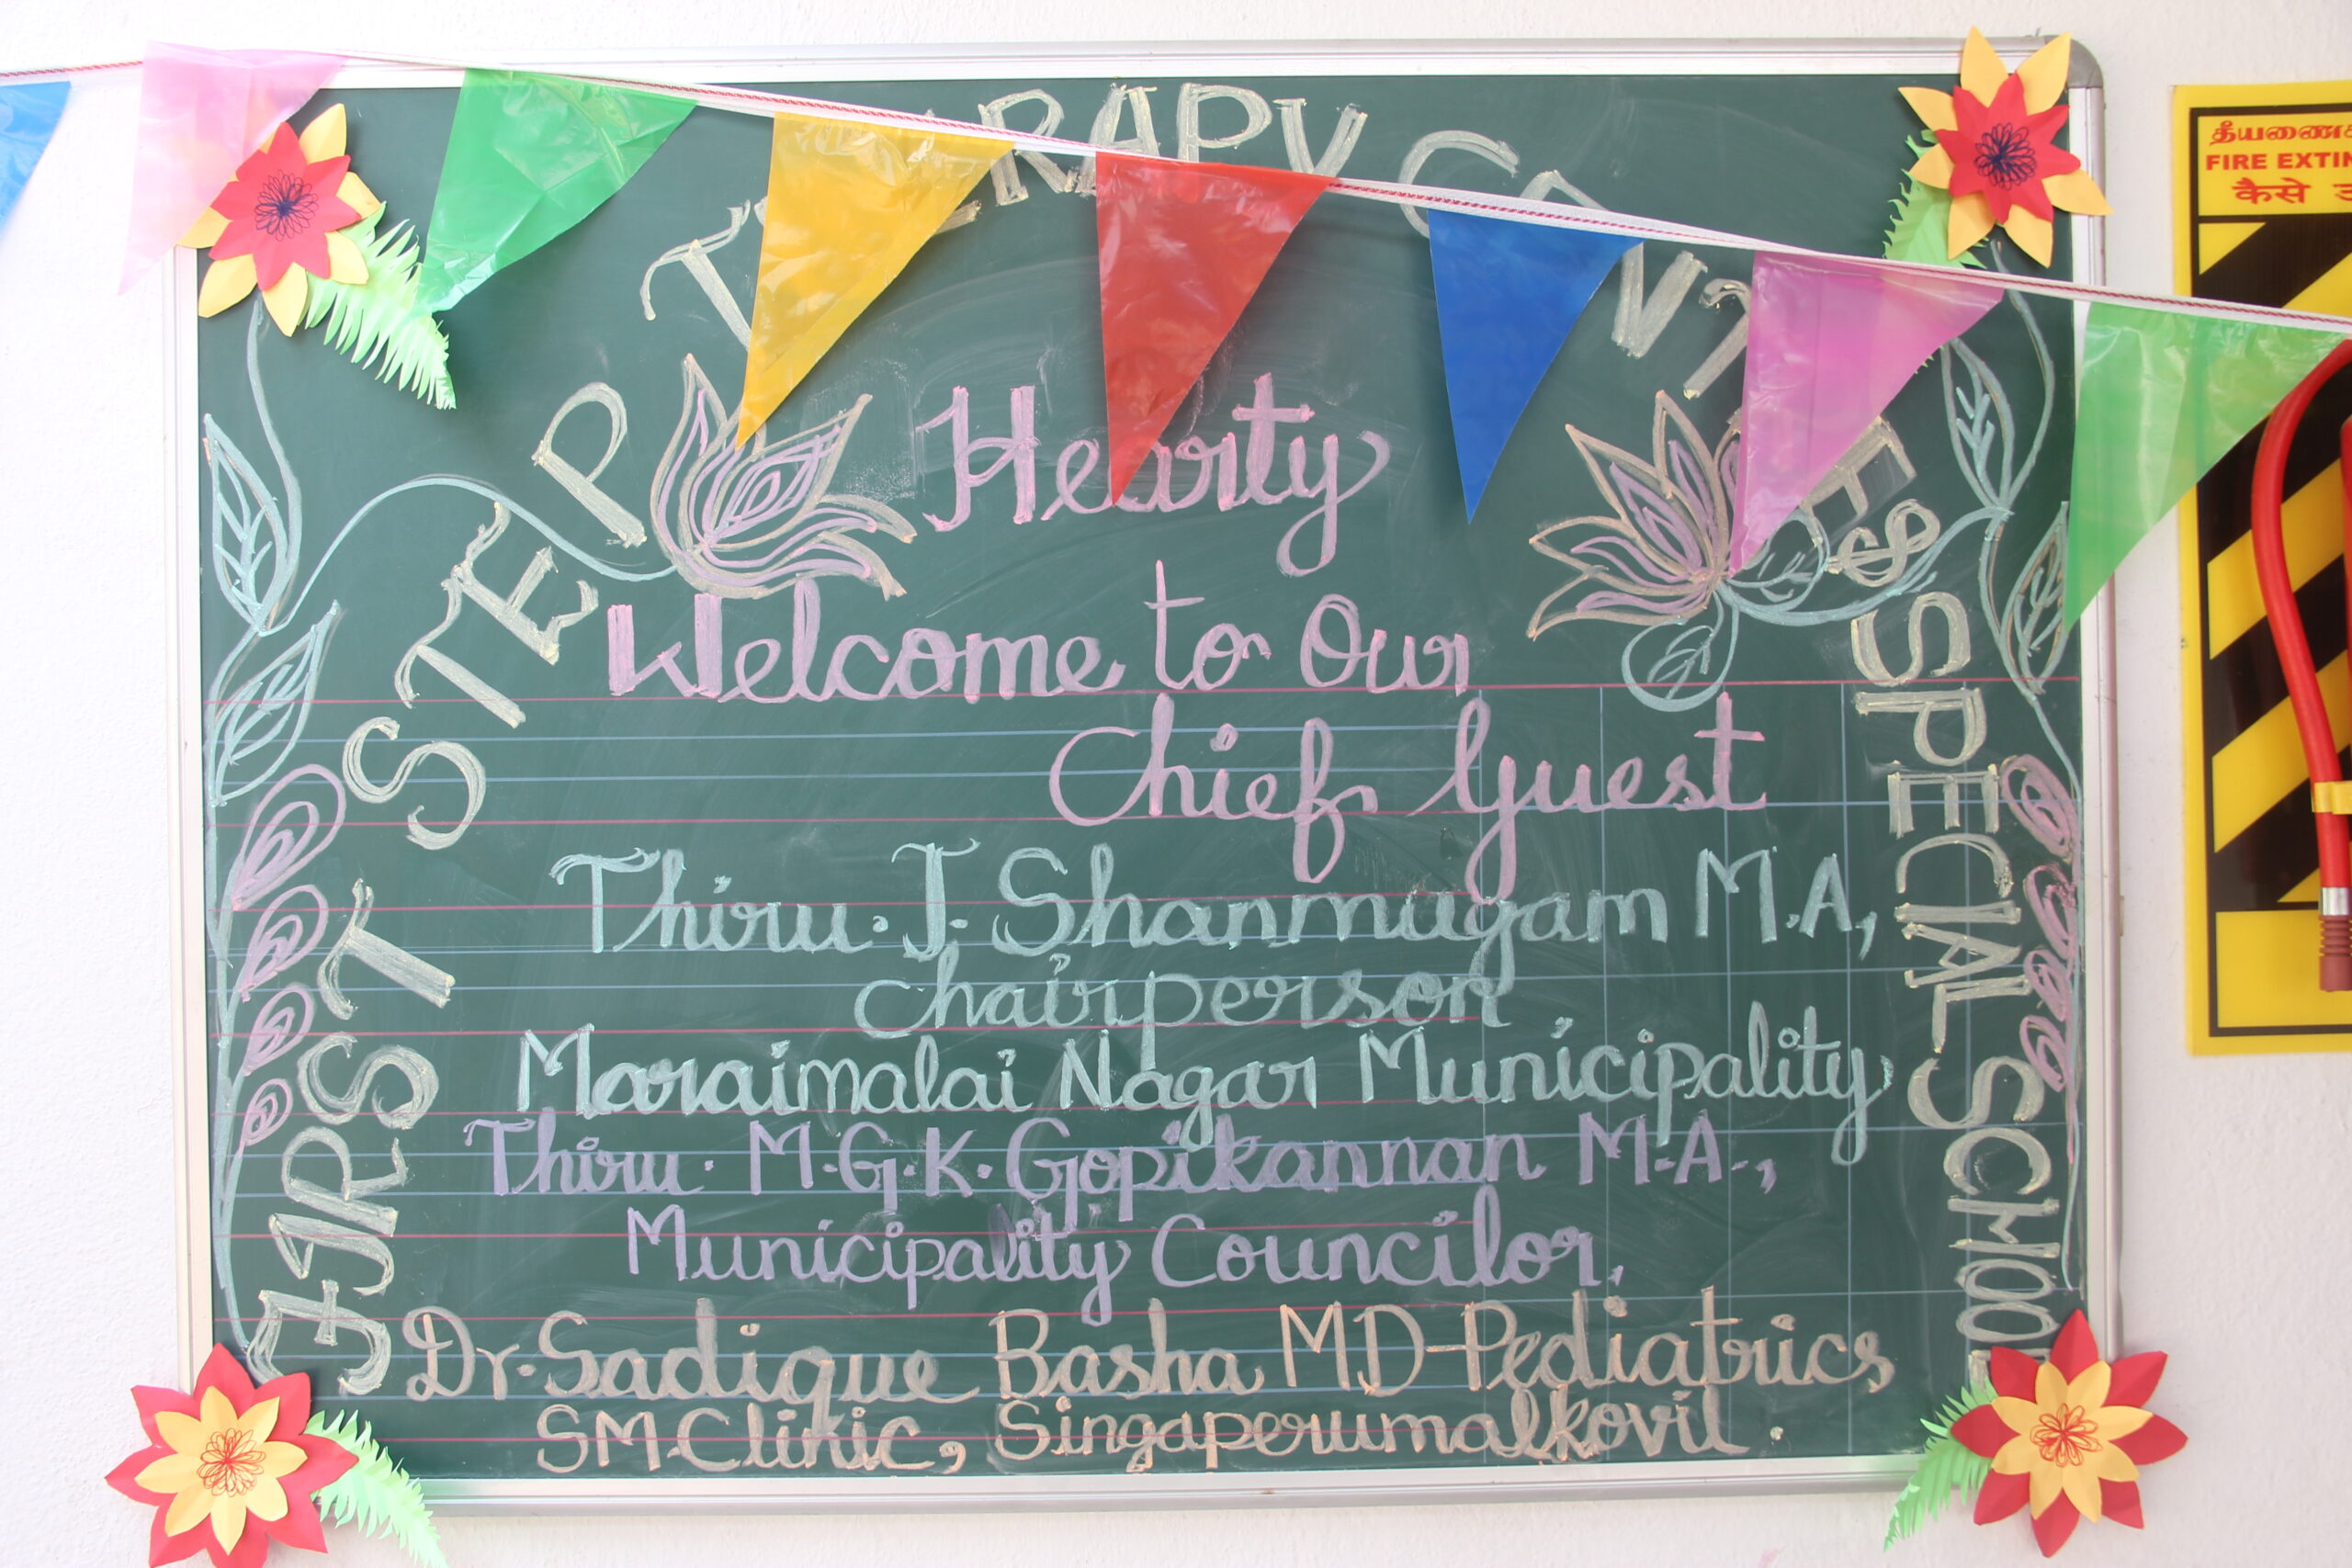 FIRST STEP THERAPY CENTRE & SPECIAL SCHOOL
Hearty
Welcome to Our
Chief Guest
Thiru. J. Shanmugam M.A,
Chairperson
Maraimalai Nagar Municipality
Thiru. M.G.K. Gopikannan M.A.,
Municipality Councilor,
Dr. Sadique Basha MD-Pediatrics
SM-Clinic, Singaperumalkovil.
FIRE EXTIN
कैसे